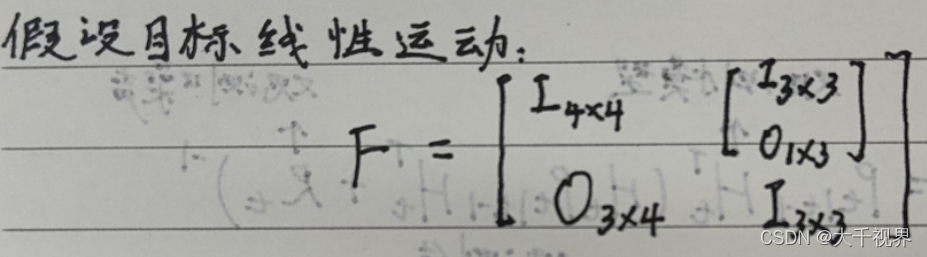 假设目标线性运动:
F = [ I4×4 [ I3×3
O1×3 ]
O3×4 I3×3 ]
CSDN @大千视界